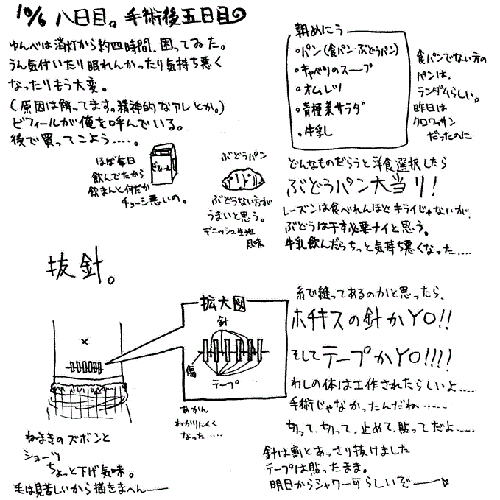 10/6 八日目。手術後五日目
ゆんべは消灯から約四時間、困ってみた。
うん気付いたり眠れんかったり気持ち悪く
なったりもう大変。
(原因は解ってます。精神的なアレとか。)
ビフィールが俺を呼んでいる。
後で買ってこよう……。
ほぼ毎日
飲んでたから
飲まんと何だか
チョーシ悪いの。
ぶどうパン
ぶどうない方が
うまいと思う。
デニッシュ生地
風味
朝めにう
・パン(食パン・ぶどうパン)
・キャベツのスープ
・オムレツ
・青種菜サラダ
・牛乳
食パンでない方の
パンは、
ランダムらしい。
昨日は
クロワッサン
だったのに
どんなものだろうと洋食選択したら
ぶどうパン大当り!
レーズンは食べれんほどキライじゃないが、
ぶどうは干す必要ナイと思う。
牛乳飲んだらちっと気持ち悪くなった……
抜針。
拡大図
針
傷
テープ
あかん
わかりにくく
なった……
ねまきのズボンと
ショーツ
ちょっと下げ気味。
毛は見苦しいから描きまへん——
糸で縫ってあるのかと思ったら、
ホチキスの針かYO!!
そしてテープかYO!!!!
わしの体は工作されたらしいよ……
手術じゃなかったんだね……
切って、切って、止めて、貼ってだよ……
針は割とあっさり抜けました
テープは貼ったまま。
明日からシャワー可らしいで——